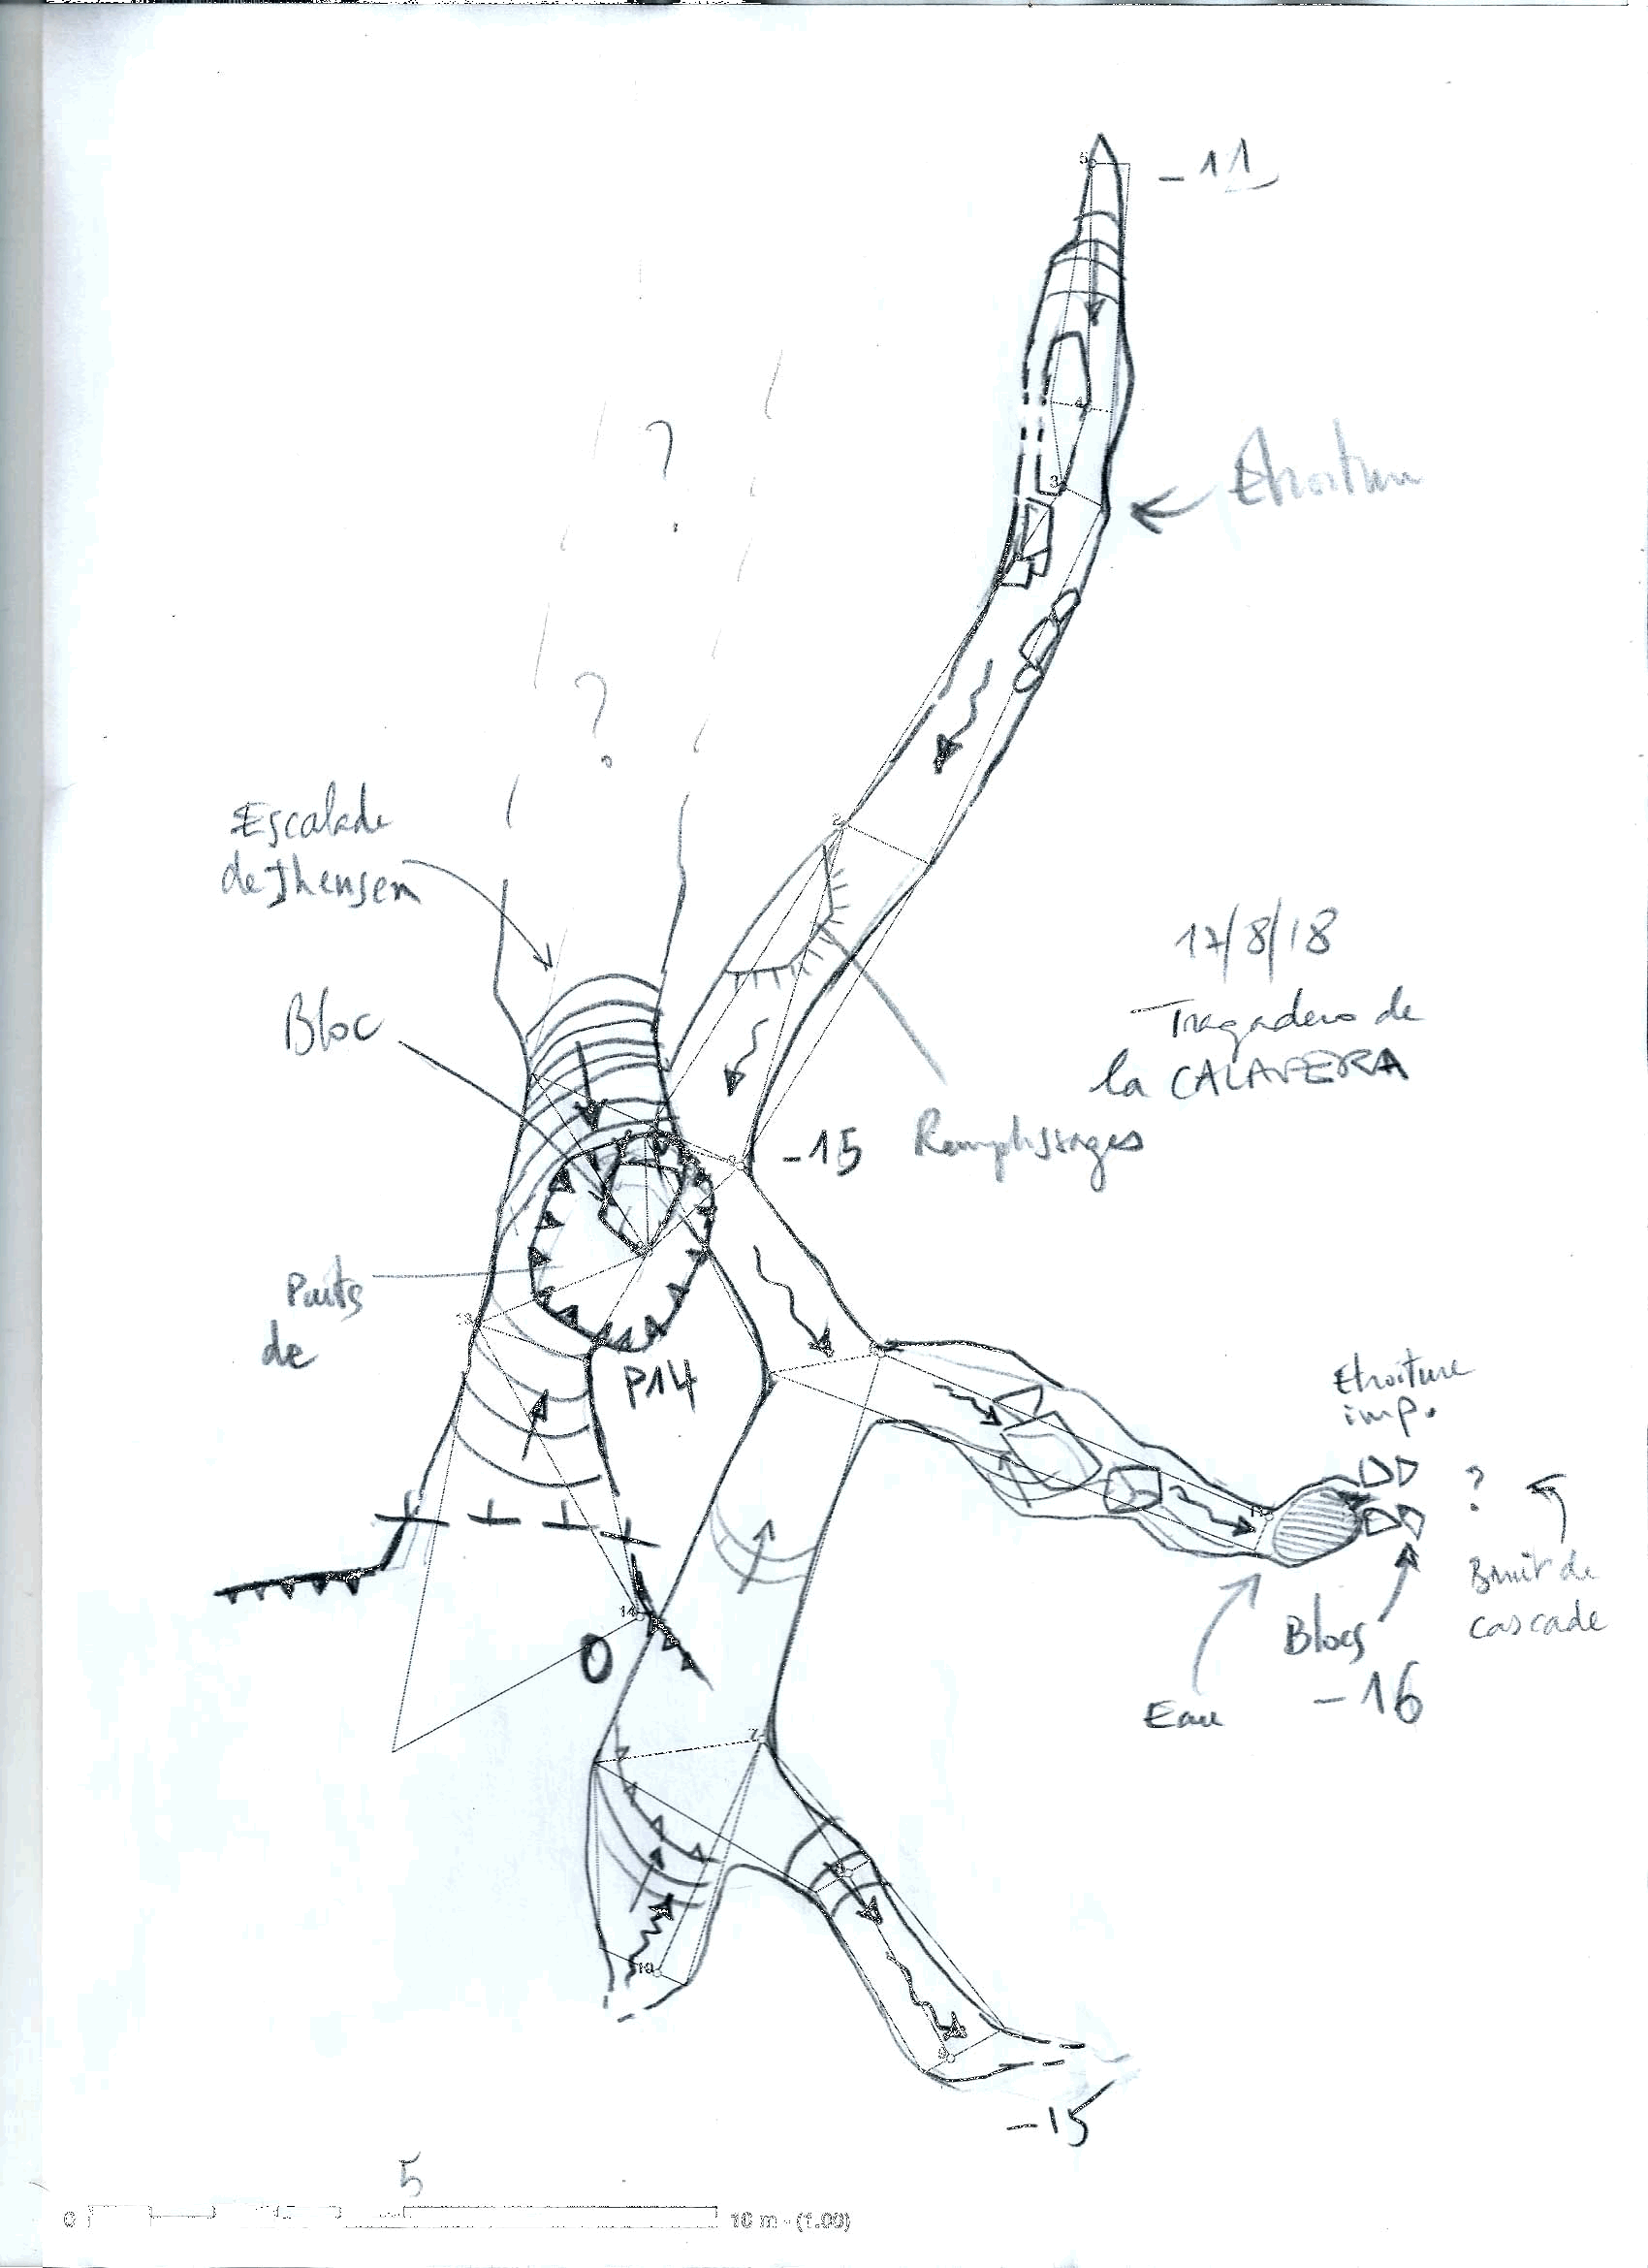 5
-11
4
?
3
Etroiture
?
2
Escalade
de Jhensen
17/8/18
Bloc
Tragadero de
la CALAVERA
-15
Remplissages
Puits
de
13
P14
Etroiture
imp.
?
Bruit de
cascade
Blocs
-16
Eau
14
0
7
10
9
-15
5
0
10 m - (1.00)